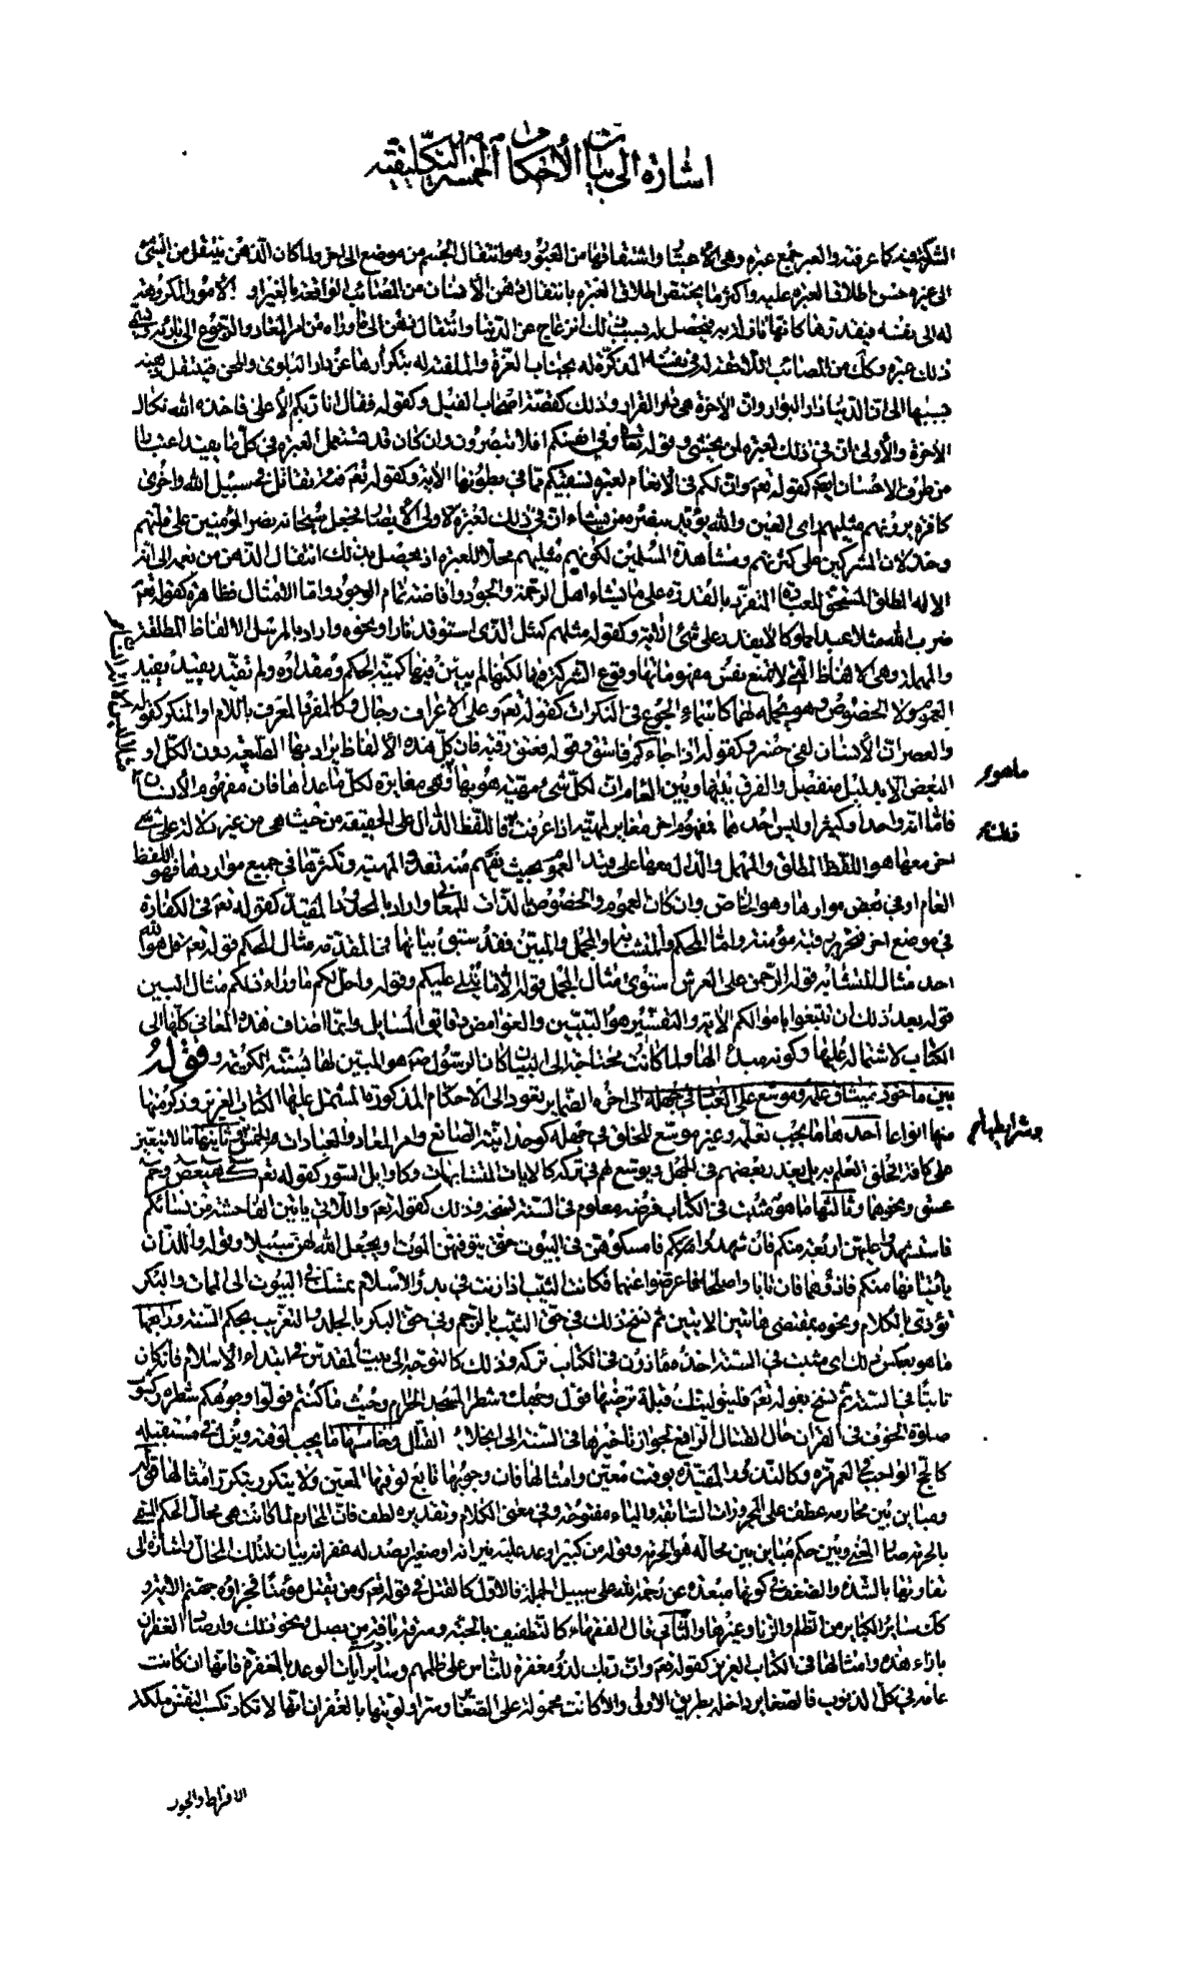 اشارة الى بيان الأحكام الخمسة التكليفية
الشكرية كما عرفته والعبر جمع عبرة وهى الاعتبار واشتقاقها من العبور وهو انتقال الجسم من موضع الى اخر ولما كان الذهن ينتقل من الشئ
الى غيره حسن اطلاق العبرة عليه واكثر ما يختص اطلاق العبرة بانتقال ذهن الانسان من المصائب الواقعة بالغير او الامور المكروهة
له الى نفسه فيقدرها كانها نازلة به فيحصل له بسبب ذلك انزعاج عن الدنيا وانتقال ذهن الى ما وراه من امر المعاد والرجوع الى بارئه ويسمى
ذلك عبرة وكذلك من المصائب اللاحقة له فى نفسه المذكرة له بجناب العزة والملفتة له بتكرارها عن دار البلوى والمحن فينتقل ذهنه
بسببها الى ان الدنيا دار البوار وان الاخرة هى دار القرار وذلك كقصة اصحاب الفيل وكقوله فقال انا ربكم الأعلى فاخذه الله نكال
الاخرة والأولى ان فى ذلك لعبرة لمن يخشى وقوله تعالى وفى انفسكم افلا تبصرون وان كان قد تستعمل العبرة فى كل ما يفيد اعتبارا
من طرف الاحسان ايضا كقوله تعم وان لكم فى الانعام لعبرة نسقيكم مما فى بطونها الاية وكقوله تعم فئة تقاتل فى سبيل الله واخرى
كافرة يرونهم مثليهم راى العين والله يؤيد بنصره من يشاء ان فى ذلك لعبرة لاولى الأبصار فجعل سبحانه نصر المؤمنين على قلتهم
وخذلان المشركين على كثرتهم ومشاهدة المسلمين لكونهم مثليهم محلا للعبرة اذ يحصل بذلك انتقال الذهن من نعمه الى انه
الاله المطلق المستحق للعبادة المتفرد بالقدرة على ما يشاء اهل الرحمة والجود وافاضة تمام الوجود واما الامثال فظاهرة كقوله تعم
ضرب الله مثلا عبدا مملوكا لا يقدر على شئ الاية وكقوله مثلهم كمثل الذى استوقد نارا ونحوه واراد بالمرسل الالفاظ المطلقة
والمهملة وهى الالفاظ التى لا تمنع نفس مفهوماتها وقوع الشركة فيها لكنها لم يبين فيها كمية الحكم ومقداره ولم تقيد بقيد يفيد
العموم ولا الخصوص وهو محتمله لهما كاسماء الجموع فى النكرات كقوله تعم وعلى الاعراف رجال وكالمفرد المعرف باللام او المنكر كقوله
والعصر ان الانسان لفى خسر وكقوله ان جاءكم فاسق وقوله فعتق رقبة فان كل هذه الألفاظ يراد بها الطبيعة دون الكل او
البعض الا بدليل منفصل والفرق بينها وبين العام ان لكل شئ مهية هو بها وهى مغايرة لكل ما عداها فان مفهوم الأنسان
فاما انه واحدا وكثيرا وليس احدهما فمفهوم اخر مغاير لمهيته اذا عرفت فاللفظ الدال على الحقيقة من حيث هى من غير دلالة على شئ
اخر معها هو اللفظ المطلق والمهمل والدال معها على قيد العموم بحيث يفهم منه تعدد المهية وتكثرها فى جميع مواردها فهو اللفظ
العام او فى بعض مواردها وهو الخاص وان كان العموم والخصوص بالذات للمعانى واراد بالمحدود المقيد كقوله تعم فى الكفارة
فى موضع اخر فتحرير رقبة مؤمنة واما المحكم والمتشابه والمجمل والمبين فقد سبق بيانها فى المقدمة مثال المحكم قوله تعم قل هو الله
احد مثال المتشابه قوله الرحمن على العرش استوى مثال المجمل قوله الا ما يتلى عليكم وقوله واحل لكم ما وراء ذلكم مثال المبين
قوله بعد ذلك ان تبتغوا باموالكم الاية والتفسير هو التبيين والغوامض دقايق المسايل وانما اضاف هذه المعانى كلها الى
الكتاب لاشتماله عليها وكونه مبدأ لها ولما كانت محتاجة الى البيان كان الرسول صم هو المبين لها بسنته الكريمة وقوله
بين ماخوذ ميثاق علمه وموسع على العباد فى جهله الى اخره الضماير تعود الى الاحكام المذكورة المشتمل عليها الكتاب العزيز وذكر منها
منها انواعا احدها ما يجب تعلمه وغير موسع للخلق فى جهله كوحدانية الصانع وامر المعاد والعبادات الخمس وثانيها ما لا يتعين
على كافة الخلق العلم به بل يعذر بعضهم فى الجهل ويوسع لهم فى تركه كالايات المتشابهات وكاوايل السور كقوله تعم كهيعص وحم
عسق ونحوهما وثالثها ما هو مثبت فى الكتاب فرضه معلوم فى السنة نسخه وذلك كقوله تعم واللاتى ياتين الفاحشة من نسائكم
فاستشهدوا عليهن اربعة منكم فان شهدوا فامسكوهن فى البيوت حتى يتوفهن الموت او يجعل الله لهن سبيلا وقوله واللذان
يأتيانها منكم فاذوهما فان تابا واصلحا فاعرضوا عنهما فكانت الثيب اذا زنت فى بدؤ الاسلام تمسك فى البيوت الى الممات والبكر
تؤذى بالكلام ونحوه بمقتضى هاتين الايتين ثم نسخ ذلك فى حق الثيب بالرجم وفى حق البكر بالجلد والتغريب بحكم السنة ورابعها
ما هو بعكس ذلك اى مثبت فى السنة اخذه ماذون فى الكتاب تركه وذلك كالتوجه الى بيت المقدس فى ابتداء الاسلام فانه كان
ثابتا فى السنة ثم نسخ بقوله تعم فلنولينك قبلة ترضها فول وجهك شطر المسجد الحرام وحيث ما كنتم فولوا وجوهكم شطره وكثبوت
صلوة الخوف فى القران حال القتال الرافع لجواز تاخيرها فى السنة الى انجلاء القتال وخامسها ما يجب لوقته ويزل فى مستقبله
كالحج الواجب فى العمر مرة وكالنذور المقيدة بوقت معين وامثالها فان وجوبها تابع لوقتها المعين ولا يتكرر بتكرر امثالها قوله
ومباين بين محارمه عطف على المجرورات السابقة والياء مفتوحة وفى معنى الكلام وتقديره لطف فان المحارم لما كانت هى محال الحكم المسمى
بالحرمة صار المعنى وبين حكم مباين بين محاله هو الحرمة وقوله من كبير اوعد عليه نيرانه او صغير ارصد له غفرانه بيان لتلك المحال واشارة الى
تفاوتها بالشدة والضعف فى كونها مبعدة عن رحمة الله على سبيل الجملة فالاول كالقتل فى قوله تعم ومن يقتل مؤمنا فجزاؤه جهنم الاية و
كذلك ساير الكباير من الظلم والزنا وغيرها والثانى قال الفقهاء كالتطفيف بالحبة وسرقة باقة من بصل ونحو ذلك وارصاد الغفران
بازاء هذه وامثالها فى الكتاب العزيز كقوله تعم وان ربك لذو مغفرة للناس على ظلمهم وساير آيات الوعد بالمغفرة فانها ان كانت
عامة فى كل الذنوب فالصغاير داخلة بطريق الاولى والا كانت محمولة على الصغاير وسر اولويتها بالغفران انها لا تكاد تكسب النفس ملكة
ما هو
وشرايطها
الافراط والجور